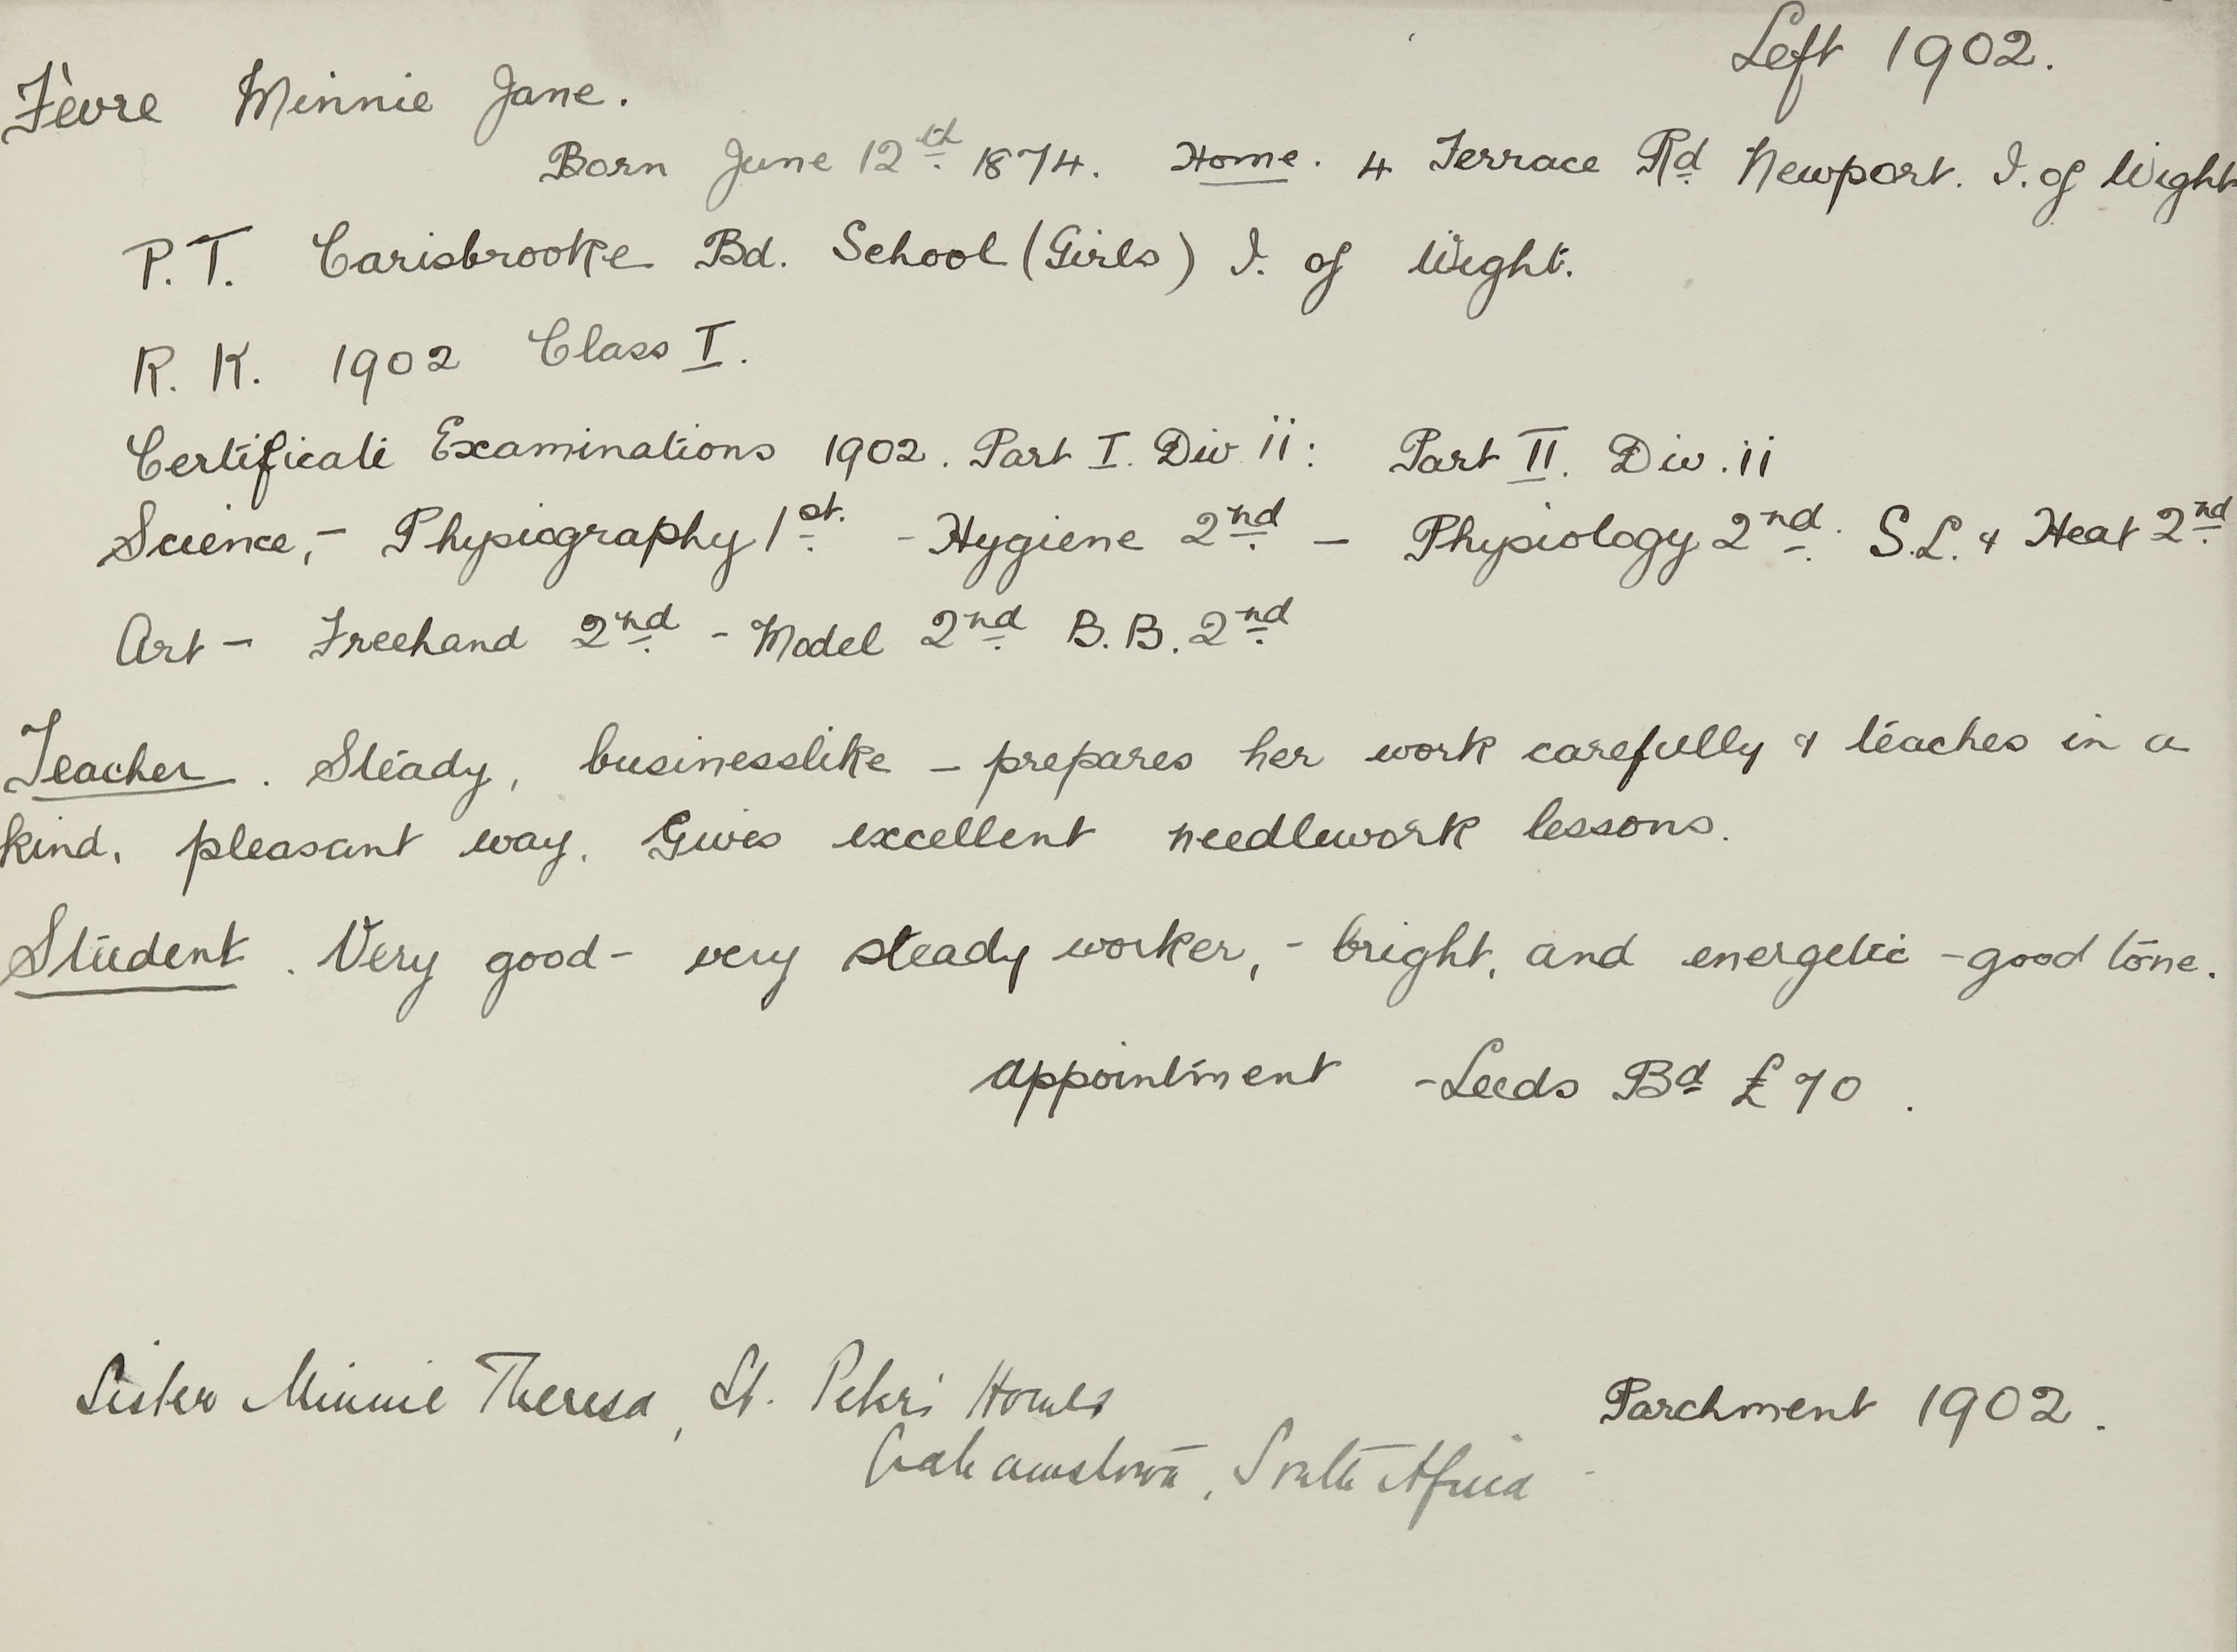 Left 1902.
Fèvre Minnie Jane.
Born June 12th 1874. Home. 4 Terrace Rd Newport. I. of Wight
P.T. Carisbrooke Bd. School (Girls) I. of Wight.
R. K. 1902 Class I.
Certificate Examinations 1902. Part I. Div ii: Part II. Div. ii
Science, - Physiography 1st. - Hygiene 2nd - Physiology 2nd. S.L. & Heat 2nd
Art - Freehand 2nd - Model 2nd B.B. 2nd
Teacher. Steady, businesslike - prepares her work carefully & teaches in a
kind, pleasant way. Gives excellent needlework lessons.
Student. Very good - very steady worker, - bright, and energetic - good tone.
Appointment - Leeds Bd £70.
Sister Minnie Theresa, St. Peter's Home
Grahamstown, South Africa
Parchment 1902.